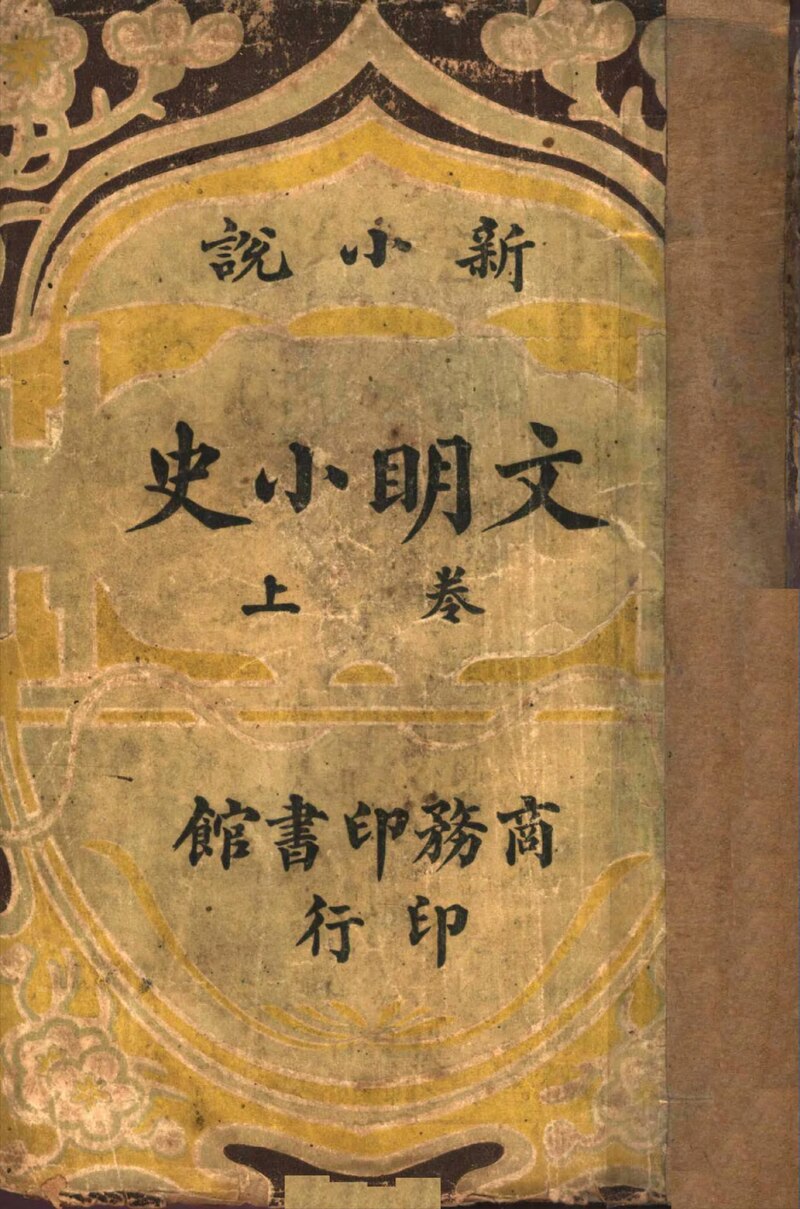 新小說
文明小史
卷上
商務印書館
印行